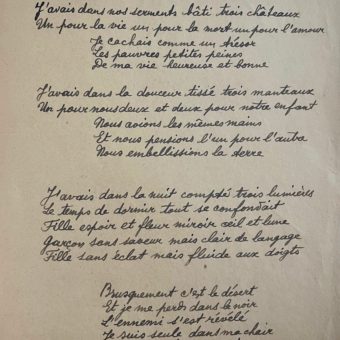 J'avais dans nos serments bâti trois châteaux
Un pour la vie un pour la mort un pour l'amour
Je cachais comme un trésor
Les pauvres petites peines
De ma vie heureuse et bonne
J'avais dans la douceur tissé trois manteaux
Un pour nous deux et deux pour notre enfant
Nous avions les mêmes mains
Et nous pensions l'un pour l'autre
Nous embellissions la terre
J'avais dans la nuit compté trois lumières
Le temps de dormir tout se confondait
Fille espoir et fleur miroir œil et lune
Garçon sans saveur mais clair de langage
Fille sans éclat mais fluide aux doigts
Brusquement c'est le désert
Et je me perds dans le noir
L'ennemi s'est révélé
Je suis seule dans ma chair